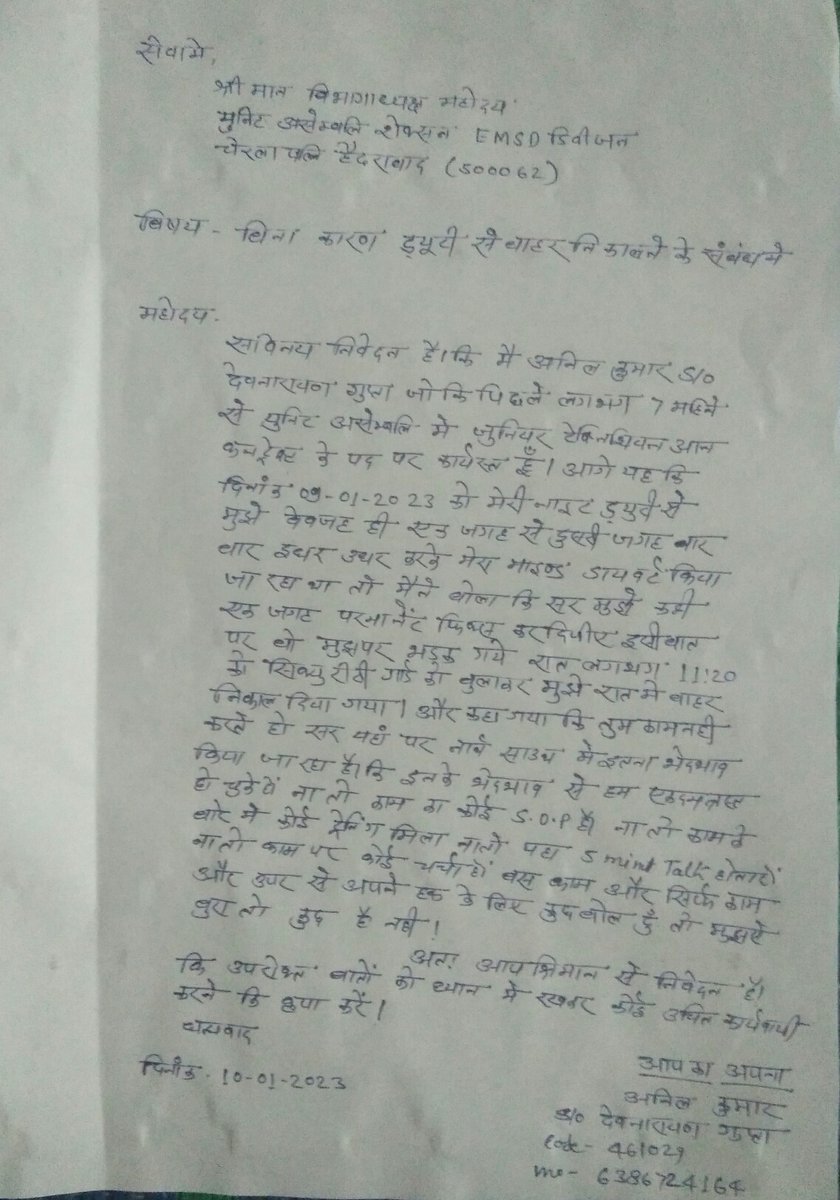 सेवामे,
श्री मान विभागाध्यक्ष महोदय
युनिट असेम्बलि शेक्सन EMSD डिवीजन
चेरलापलि हैदरावाद (500062)
विषय - बिना कारण ड्यूटी से बाहर निकालने के संबंध मे
महोदय.
सविनय निवेदन है। कि मै अनिल कुमार S/o
देवनारायण गुप्ता जो कि पिछले लगभग 7 महिने
से युनिट असेम्बलि मे जुनियर टेक्निशियन आन
कन्ट्रेक्ट के पद पर कार्यरत हूँ। आगे यह कि
दिनांक 09-01-2023 को मेरी नाइट ड्युटी से
मुझे वेवजह ही एक जगह से दुसरी जगह बार
बार इधर उधर करके मेरा माइण्ड डायवर्ट किया
जा रहा था तो मैने बोला कि सर मुझे कही
एक जगह परमानेंट फिक्स करदिजीए इसीबात
पर वो मुझपर भड़क गये रात लगभग 11:20
को सिक्युरीटी गार्ड को बुलाकर मुझे रात मे बाहर
निकाल दिया गया। और कहा गया कि तुम काम नही
करते हो सर यहां पर नार्थ साउथ मे इतना भेदभाव
किया जा रहा है। कि इनके भेदभाव से हम एकदम त्रस्त
हो चुके है ना तो काम का कोई S.O.P है। ना तो काम के
बारे मे कोई ट्रेनिंग मिला ना तो यहा 5 mint Talk होता है।
ना तो काम पर कोई चर्चा है। बस काम और सिर्फ काम
और उपर से अपने हक के लिए कुछ बोल दुँ तो मुझसे
बुरा तो कुछ है नही!
अतः आप श्रिमान से निवेदन है।
कि उपरोक्त बातों को ध्यान मे रखकर कोई उचित कार्यवाही
करने कि कृपा करें।
धन्यवाद
दिनांक - 10-01-2023
आप का अपना
अनिल कुमार
S/o देवनारायण गुप्ता
Code - 461029
mo - 6386724164